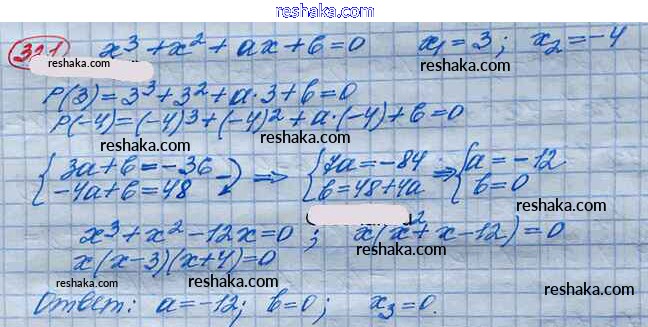 reshaka.com
321 x³+x²+ax+b=0 x₁=3; x₂=-4
reshaka.com
P(3)=3³+3²+a·3+b=0
P(-4)=(-4)³+(-4)²+a·(-4)+b=0
reshaka.com
{3a+b=-36 ⇒ {7a=-84 ⇒ {a=-12
-4a+b=48 b=48+4a b=0
reshaka.com
x³+x²-12x=0; x(x²+x-12)=0
x(x-3)(x+4)=0
reshaka.com
Ответ: a=-12; b=0; x₃=0.
reshaka.com